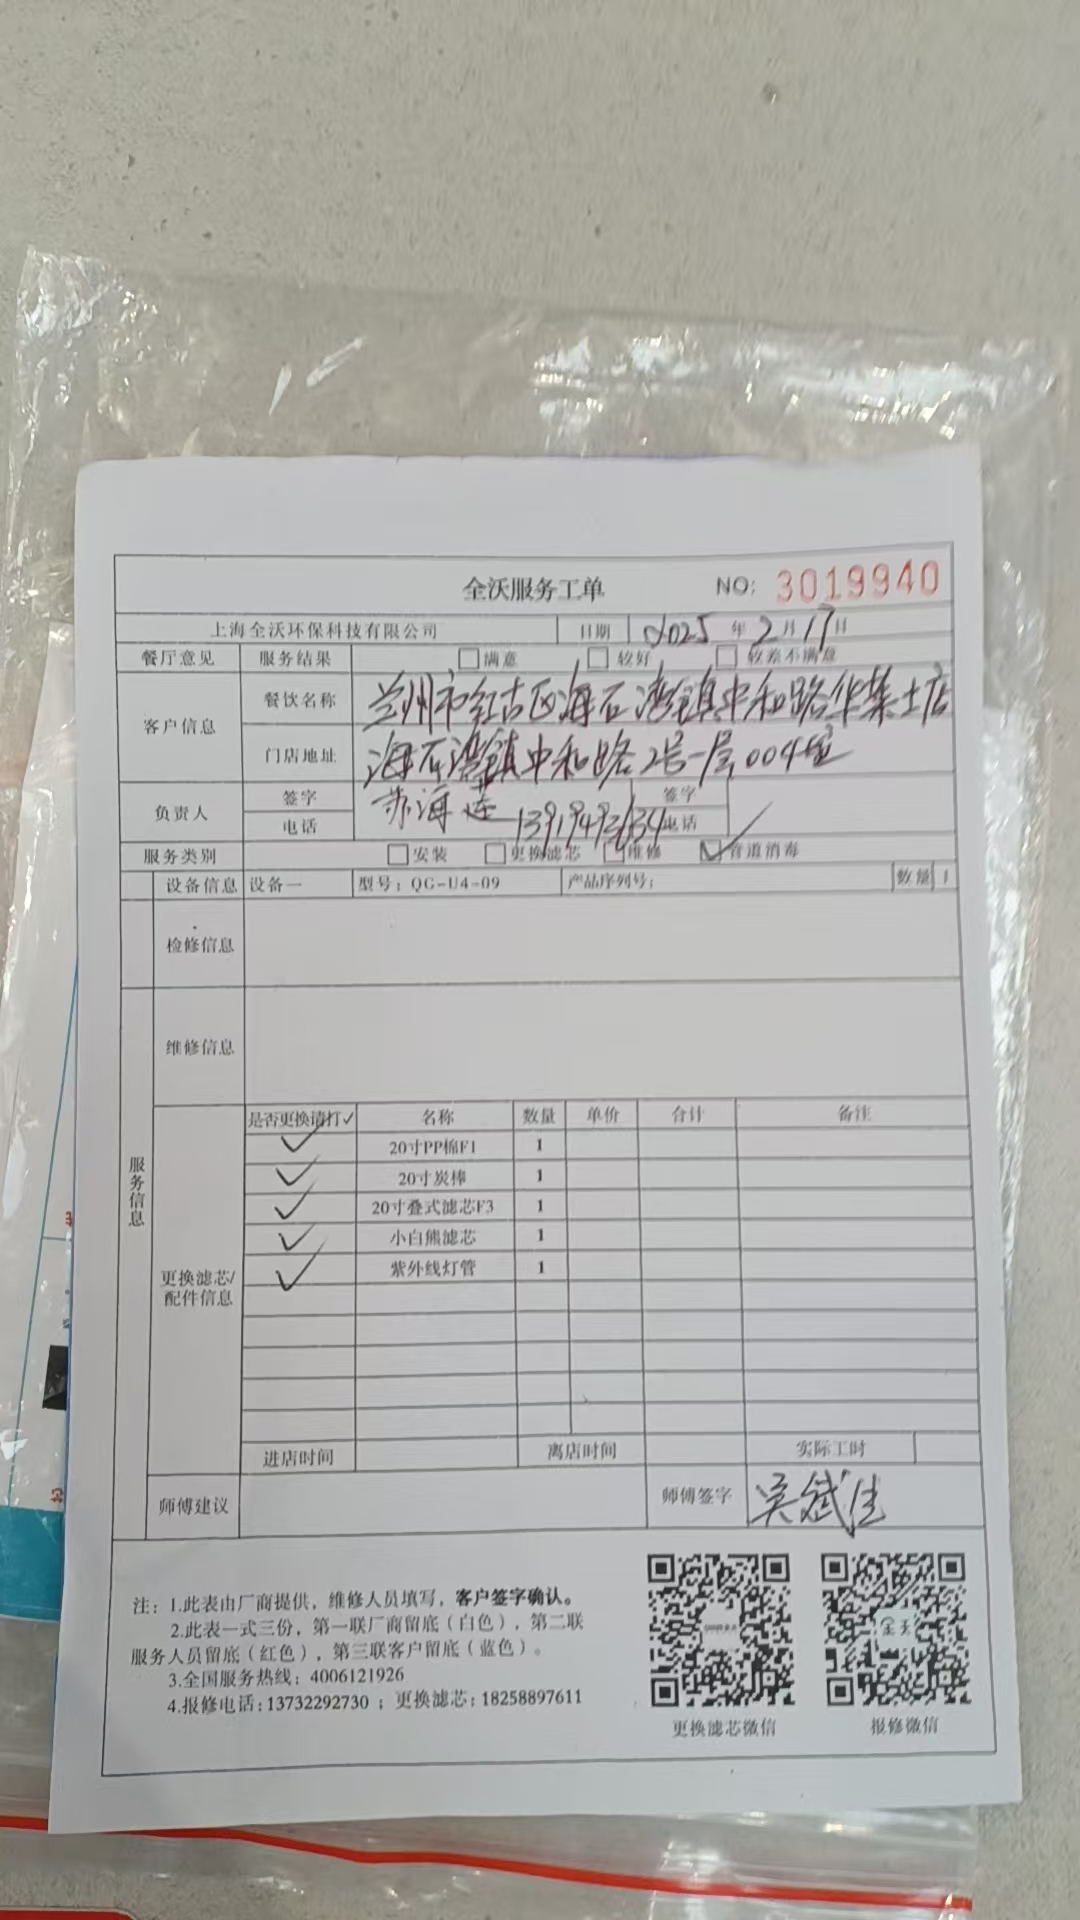 全沃服务工单 NO: 3019940
上海全沃环保科技有限公司 日期 2025 年 2 月 17 日
餐厅意见 服务结果 满意 较好 较差不满意
客户信息 餐饮名称 兰州市红古区海石湾镇中和路华莱士店
门店地址 海石湾镇中和路2号一层004室
负责人 签字 苏海莲 签字
电话 13919493634 电话
服务类别 安装 更换滤芯 维修 ✓管道消毒
设备信息 设备一 型号: QG-U4-09 产品序列号: 数量 1
检修信息
维修信息
服务信息
更换滤芯/配件信息
是否更换请打✓ 名称 数量 单价 合计 备注
✓ 20寸PP棉F1 1
✓ 20寸炭棒 1
✓ 20寸叠式滤芯F3 1
✓ 小白熊滤芯 1
✓ 紫外线灯管 1
进店时间 离店时间 实际工时
师傅建议 师傅签字 吴斌佳
注: 1.此表由厂商提供,维修人员填写,客户签字确认。
2.此表一式三份,第一联厂商留底(白色),第二联
服务人员留底(红色),第三联客户留底(蓝色)。
3.全国服务热线: 4006121926
4.报修电话:13732292730 ; 更换滤芯:18258897611
更换滤芯微信 报修微信